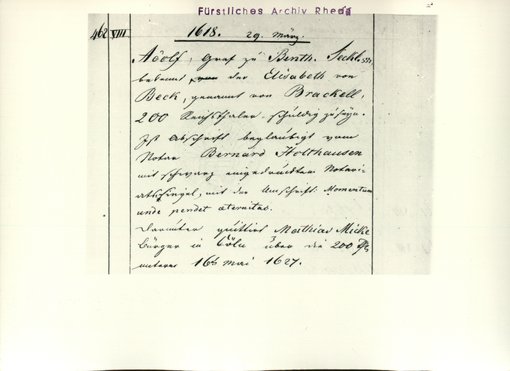 Fürstliches Archiv Rheda
462 VIII.
1618. 29. März.
Adolf, Graf zu Benth. Teckl. etc.
bekennt der Elisabeth von
Beck, genannt von Brackell,
200 Reichsthaler schuldig zu sein.
Ist Abschrift beglaubigt vom
Notar Bernard Holthausen
mit schwarz eingedrücktem Notari-
atssiegel, mit der Umschrift: Momentum
unde pendet aternitas.
Darunter quittirt Mathias Micke
Bürger in Cöln über die 200
unterm 16 Mai 1627.